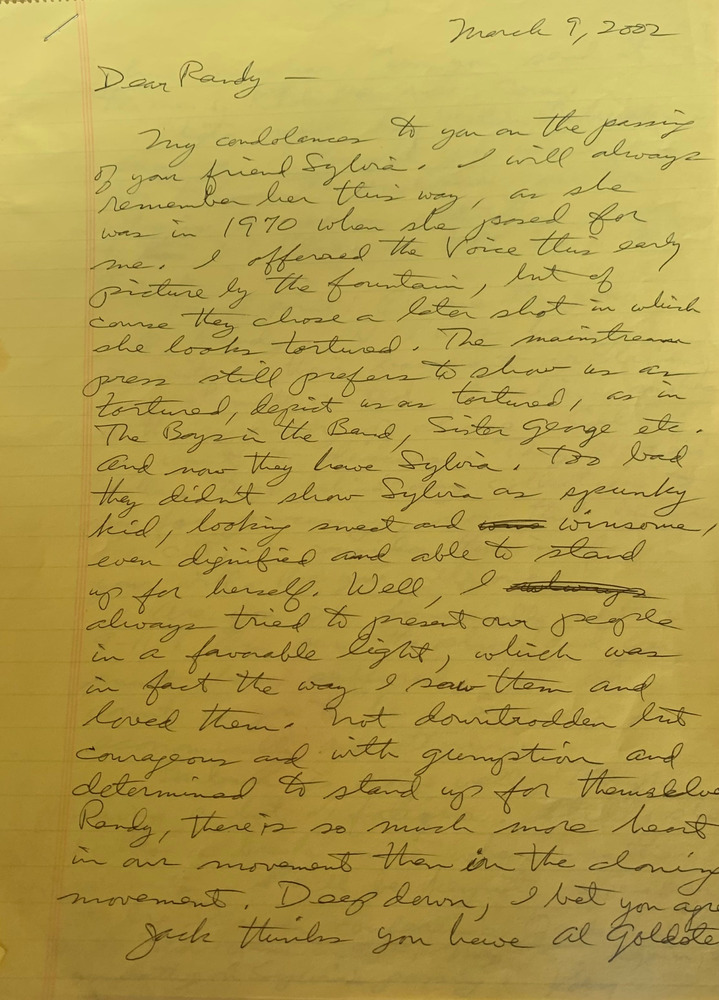 March 9, 2002
Dear Randy —
My condolances to you on the passing
of your friend Sylvia. I will always
remember her this way, as she
was in 1970 when she posed for
me. I offered the Voice this early
picture by the fountain, but of
course they chose a later shot in which
she looks tortured. The mainstream
press still prefers to show us as
tortured, depict us as tortured, as in
The Boys in the Band, Sister George etc.
And now they have Sylvia. Too bad
they didn't show Sylvia as spunky
kid, looking sweet and winsome,
even dignified and able to stand
up for herself. Well, I
always tried to present our people
in a favorable light, which was
in fact the way I saw them and
loved them. Not downtrodden but
courageous and with gumption and
determined to stand up for themselve
Randy, there is so much more heart
in our movement then in the cloning
movement. Deep down, I bet you agre
Jack thinks you have Al Goldste